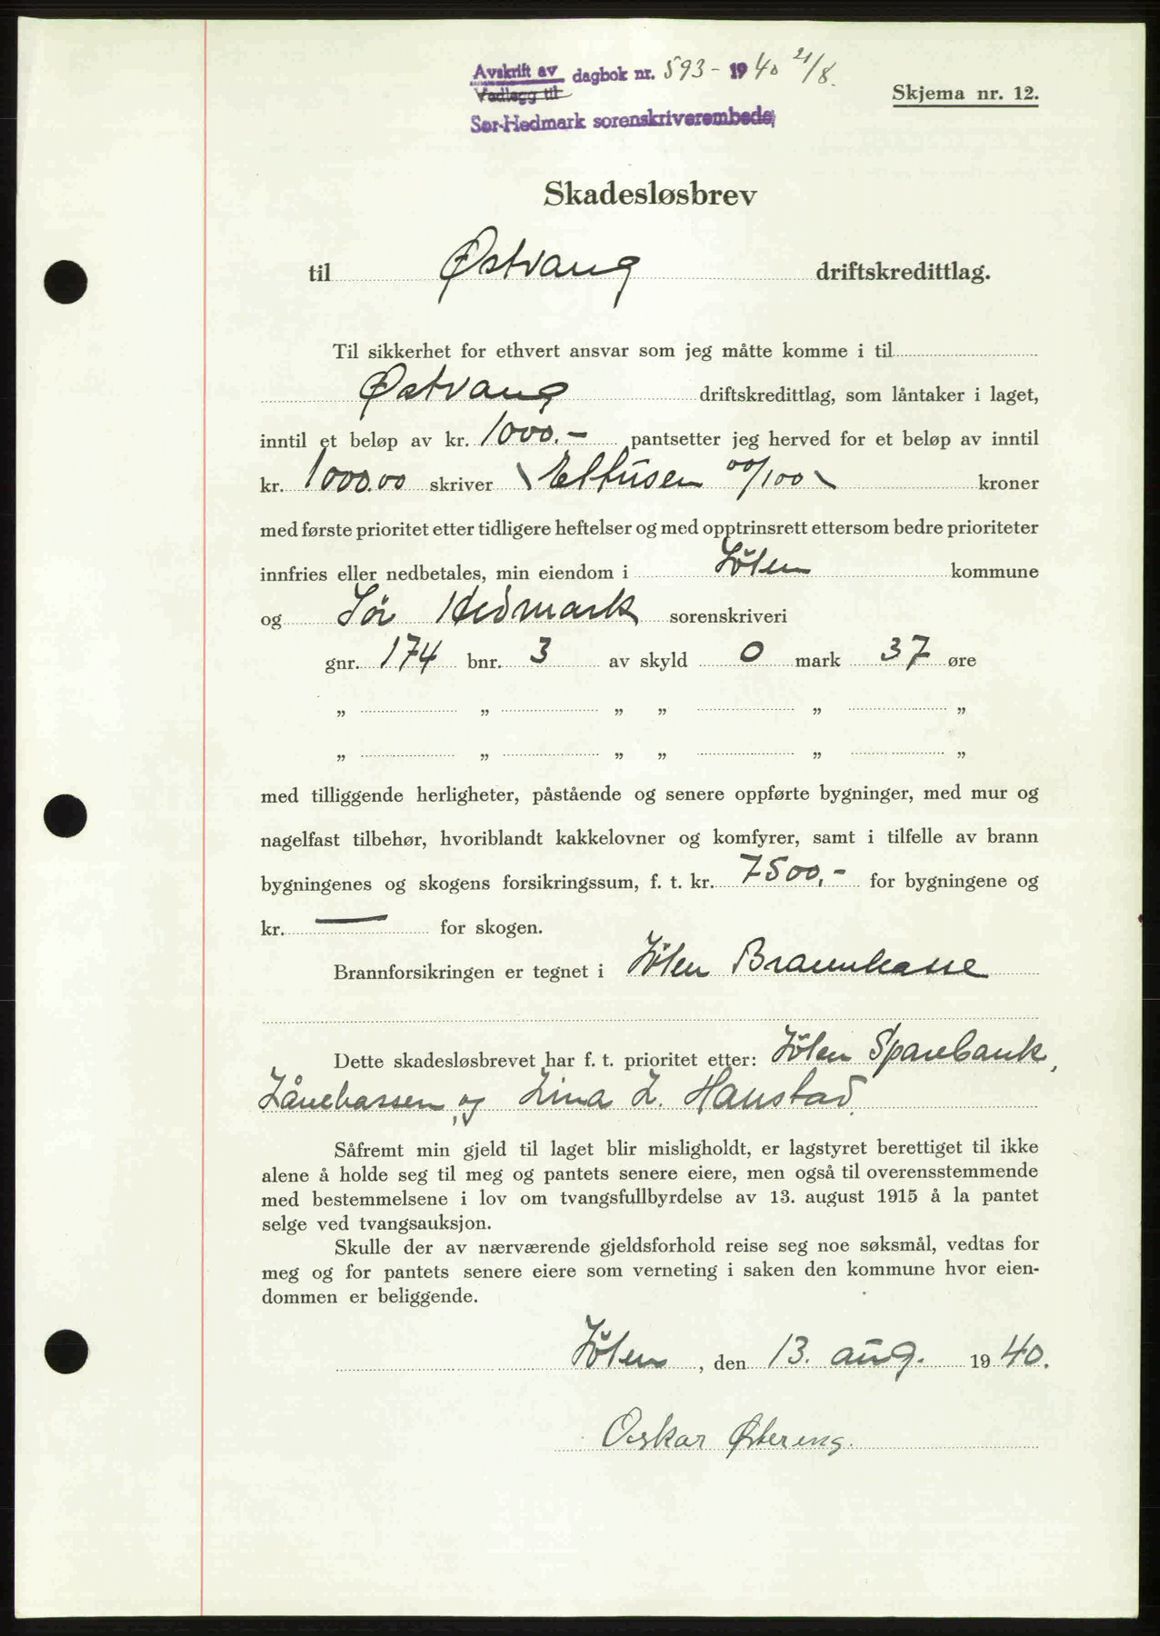 Avskrift av dagbok nr. 593 - 1940 21/8.
Vedlegg til
Sør-Hedmark sorenskriverembede,
Skjema nr. 12.
Skadesløsbrev
til Østvang driftskredittlag.
Til sikkerhet for ethvert ansvar som jeg måtte komme i til
Østvang driftskredittlag, som låntaker i laget,
inntil et beløp av kr. 1000.- pantsetter jeg herved for et beløp av inntil
kr. 1000.00 skriver \ Ettusen 00/100 \ kroner
med første prioritet etter tidligere heftelser og med opptrinsrett ettersom bedre prioriteter
innfries eller nedbetales, min eiendom i Løten kommune
og Sør Hedmark sorenskriveri
gnr. 174 bnr. 3 av skyld 0 mark 37 øre
„ „ „ „ „ „
„ „ „ „ „ „
med tilliggende herligheter, påstående og senere oppførte bygninger, med mur og
nagelfast tilbehør, hvoriblandt kakkelovner og komfyrer, samt i tilfelle av brann
bygningenes og skogens forsikringssum, f. t. kr. 7500,- for bygningene og
kr. — for skogen.
Brannforsikringen er tegnet i Løten Brannkasse
Dette skadesløsbrevet har f. t. prioritet etter: Løten Sparebank,
Lånekassen, og Lina L. Haustad.
Såfremt min gjeld til laget blir misligholdt, er lagstyret berettiget til ikke
alene å holde seg til meg og pantets senere eiere, men også til overensstemmende
med bestemmelsene i lov om tvangsfullbyrdelse av 13. august 1915 å la pantet
selge ved tvangsauksjon.
Skulle der av nærværende gjeldsforhold reise seg noe søksmål, vedtas for
meg og for pantets senere eiere som verneting i saken den kommune hvor eien-
dommen er beliggende.
Løten, den 13. aug. 1940.
Oskar Østereng.